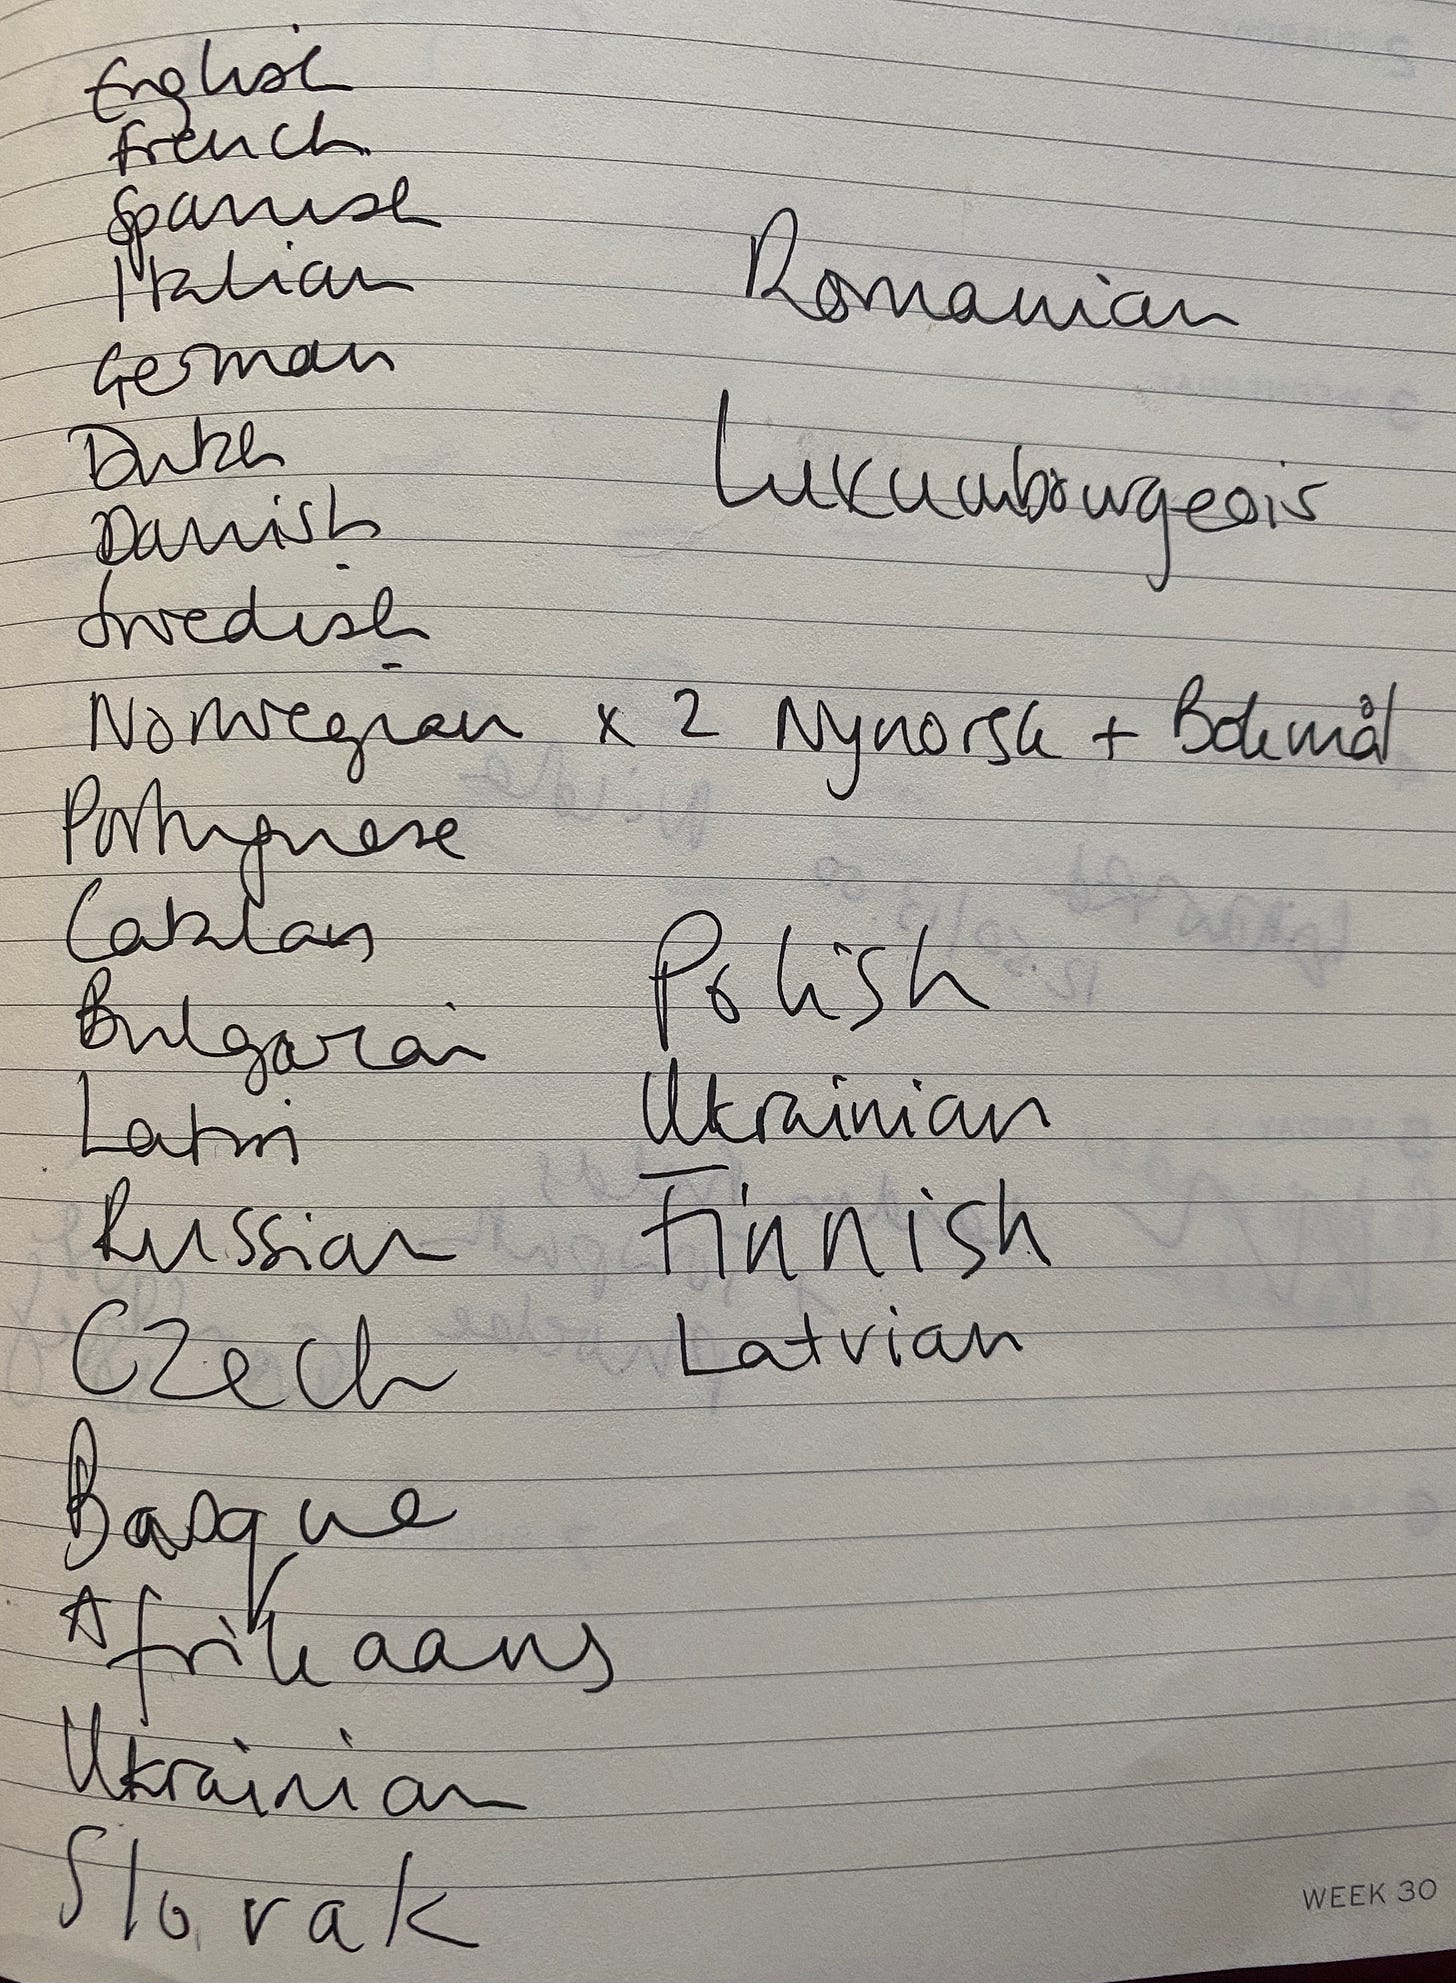 English
French
Spanish
Italian
German
Dutch
Danish
Swedish
Norwegian x 2 Nynorsk + Bokmål
Portuguese
Catalan
Bulgarian
Latin
Russian
Czech
Basque
Afrikaans
Ukrainian
Slovak
Romanian
Luxumbourgeois
Polish
Ukrainian
Finnish
Latvian
WEEK 30